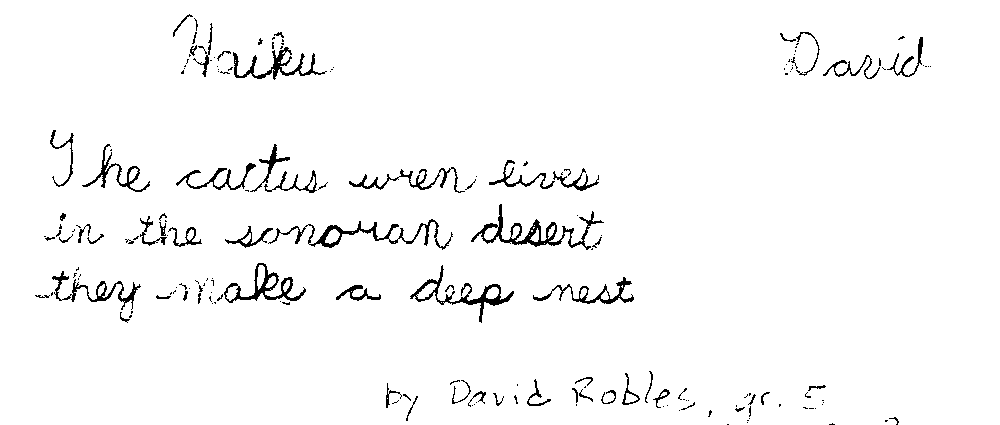 Haiku David
The cactus wren lives
in the sonoran desert
they make a deep nest
by David Robles, gr. 5